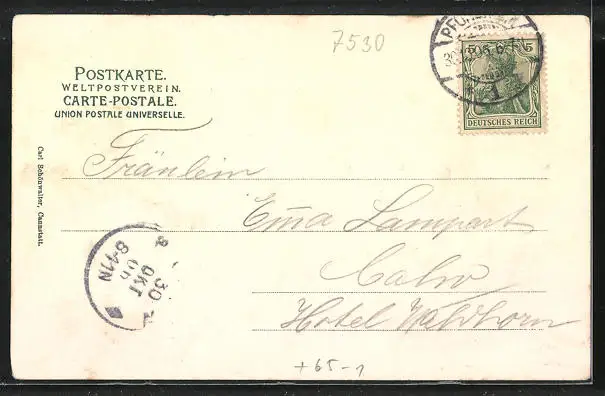 7530
PFORZHEIM
5 5
DEUTSCHES REICH
1
POSTKARTE.
WELTPOSTVEREIN.
CARTE-POSTALE.
UNION POSTALE UNIVERSELLE.
Carl Schönwalter, Cannstatt.
Fräulein
Emma Lampart
Calw
Hotel Waldhorn
30
OKT
06
8-11N
+65-1